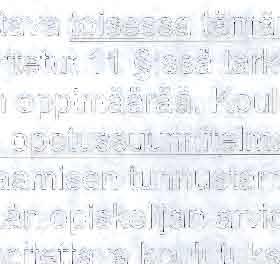 tava toisessa tämä
tetut 11 §:ssä tark
oppimäärää. Koul
opetussuunnitelma
aamisen tunnustam
än opiskelijan arvio
koulutuks